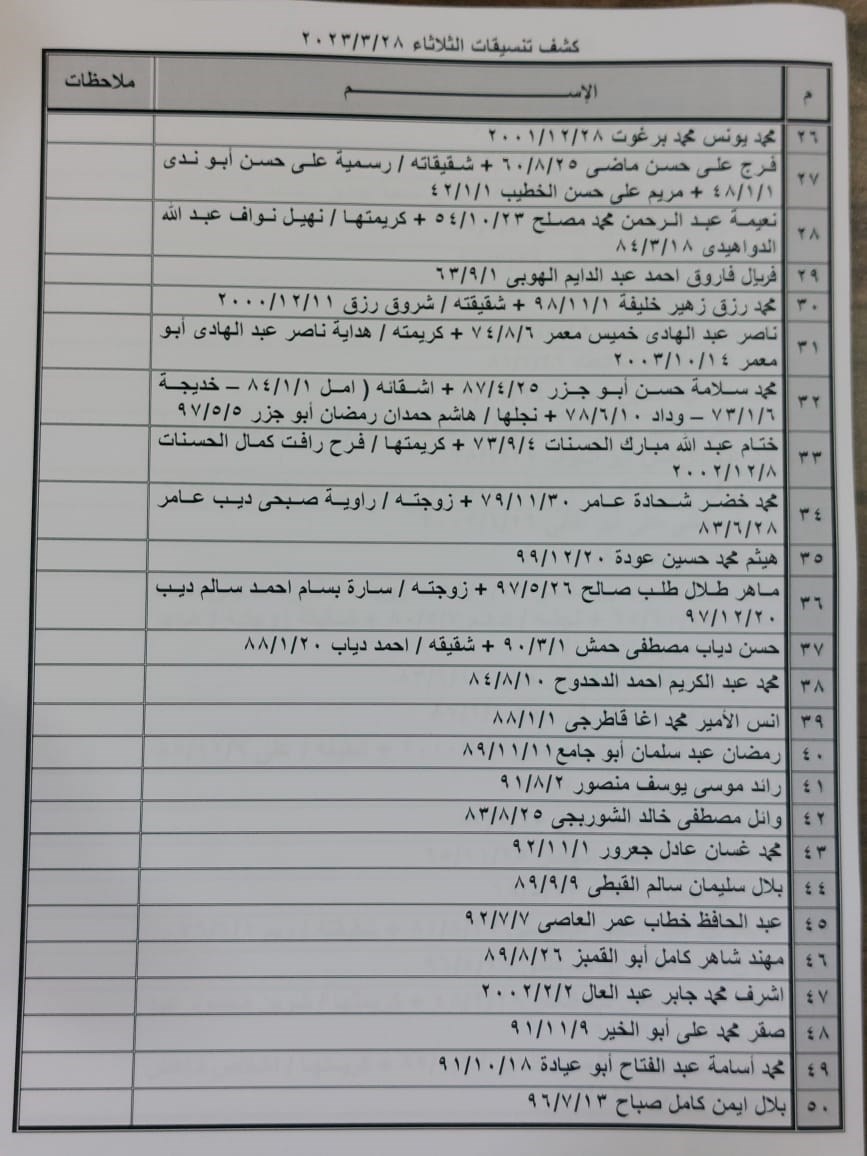 كشف تنسيقات الثلاثاء ٢٠٢٣/٣/٢٨
م الإســـــــــم ملاحظات
٢٦ محمد يونس محمد برغوت ٢٠٠١/١٢/٢٨
٢٧ فرج على حسن ماضى ٦٠/٨/٢٥ + شقيقاته / رسمية على حسن أبو ندى
٤٨/١/١ + مريم على حسن الخطيب ٤٢/١/١
٢٨ نعيمة عبد الرحمن محمد مصلح ٥٤/١٠/٢٣ + كريمتها / نهيل نواف عبد الله
الدواهيدى ٨٤/٣/١٨
٢٩ فريال فاروق احمد عبد الدايم الهوبى ٦٣/٩/١
٣٠ محمد رزق زهير خليفة ٩٨/١١/١ + شقيقته / شروق رزق ٢٠٠٠/١٢/١١
٣١ ناصر عبد الهادى خميس معمر ٧٤/٨/٦ + كريمته / هداية ناصر عبد الهادى أبو
معمر ٢٠٠٣/١٠/١٤
٣٢ محمد سلامة حسن أبو جزر ٨٧/٤/٢٥ + اشقائه ( امل ٨٤/١/١ – خديجة
٧٣/١/٦ – وداد ٧٨/٦/١٠ + نجلها / هاشم حمدان رمضان أبو جزر ٩٧/٥/٥
٣٣ ختام عبد الله مبارك الحسنات ٧٣/٩/٤ + كريمتها / فرح رافت كمال الحسنات
٢٠٠٢/١٢/٨
٣٤ محمد خضر شحادة عامر ٧٩/١١/٣٠ + زوجته / راوية صبحى ديب عامر
٨٣/٦/٢٨
٣٥ هيثم محمد حسين عودة ٩٩/١٢/٢٠
٣٦ ماهر طلال طلب صالح ٩٧/٥/٢٦ + زوجته / سارة بسام احمد سالم ديب
٩٧/١٢/٢٠
٣٧ حسن دياب مصطفى حمش ٩٠/٣/١ + شقيقه / احمد دياب ٨٨/١/٢٠
٣٨ محمد عبد الكريم احمد الدحدوح ٨٤/٨/١٠
٣٩ انس الأمير محمد اغا قاطرجى ٨٨/١/١
٤٠ رمضان عبد سلمان أبو جامع ٨٩/١١/١١
٤١ رائد موسى يوسف منصور ٩١/٨/٢
٤٢ وائل مصطفى خالد الشوربجى ٨٣/٨/٢٥
٤٣ محمد غسان عادل جعرور ٩٢/١١/١
٤٤ بلال سليمان سالم القبطى ٨٩/٩/٩
٤٥ عبد الحافظ خطاب عمر العاصى ٩٢/٧/٧
٤٦ مهند شاهر كامل أبو القمبز ٨٩/٨/٢٦
٤٧ اشرف محمد جابر عبد العال ٢٠٠٢/٢/٢
٤٨ صقر محمد على أبو الخير ٩١/١١/٩
٤٩ محمد أسامة عبد الفتاح أبو عيادة ٩١/١٠/١٨
٥٠ بلال ايمن كامل صباح ٩٦/٧/١٣